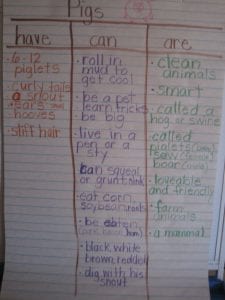 Pigs
have
6-12
piglets
curly tails
a snout
ears
hooves
stiff hair
can
roll in
mud to
get cool
be a pet
learn tricks
be big
live in a
pen or a
sty
can squeal
or grunt, oink
eat corn,
soybean, roots
be eaten
black, white
brown, reddish
dig with his
snout
are
clean
animals
smart
called a
hog or swine
called
piglets (baby)
sow (female)
boar (male)
loveable
and friendly
farm
animals
a mammal